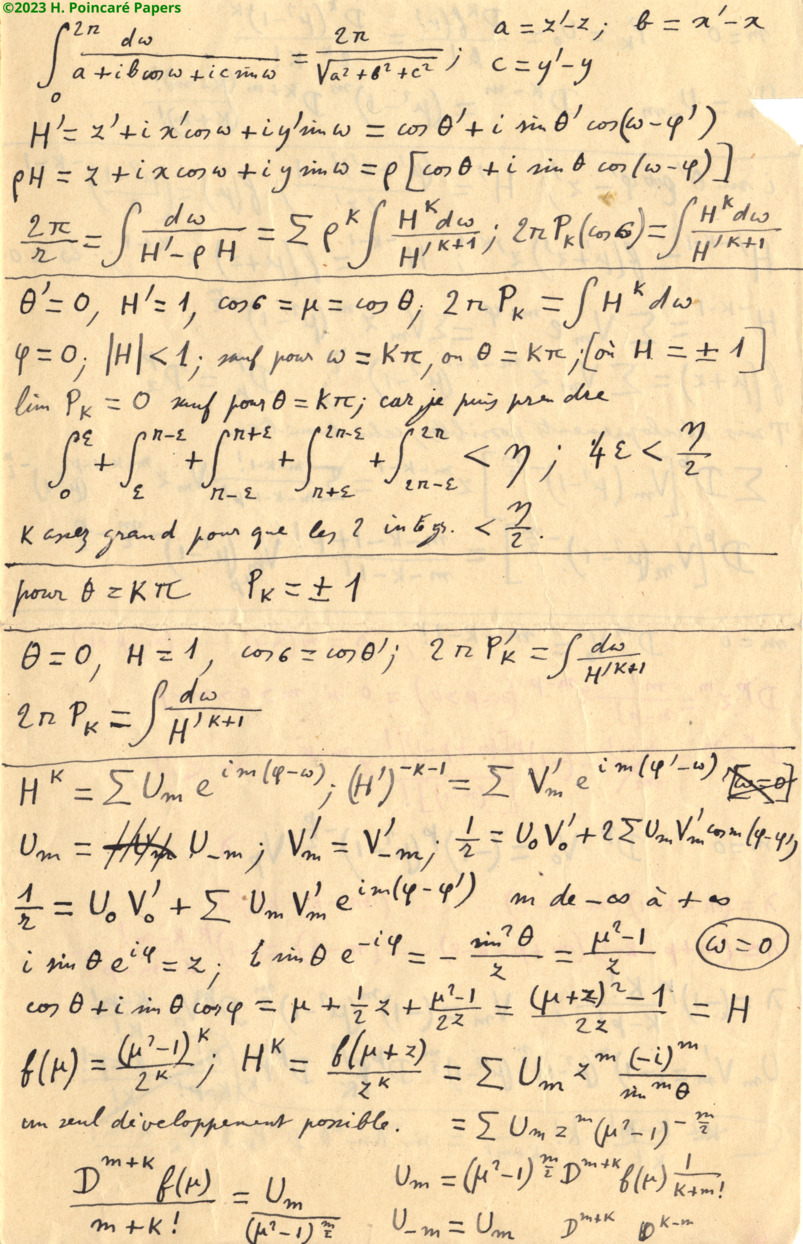 ©2023 H. Poincaré Papers
∫₀^{2π} dω / (a + ib cos ω + ic sin ω) = 2π / √(a² + b² + c²) ; a = z' - z ; b = x' - x
c = y' - y
H' = z' + i x' cos ω + i y' sin ω = cos θ' + i sin θ' cos(ω - φ')
ρH = z + i x cos ω + i y sin ω = ρ [cos θ + i sin θ cos(ω - φ)]
2π/r = ∫ dω / (H' - ρ H) = Σ ρ^K ∫ H^K dω / H'^{K+1} ; 2π P_K (cos σ) = ∫ H^K dω / H'^{K+1}
θ' = 0, H' = 1, cos σ = μ = cos θ ; 2π P_K = ∫ H^K dω
φ = 0 ; |H| < 1 ; sauf pour ω = Kπ, ou θ = Kπ ; [où H = ± 1]
lim P_K = 0 sauf pour θ = kπ ; car je puis prendre
∫₀^ε + ∫_ε^{π-ε} + ∫_{π-ε}^{π+ε} + ∫_{π+ε}^{2π-ε} + ∫_{2π-ε}^{2π} < η ; 4ε < η/2
K assez grand pour que les 2 intégr. < η/2.
pour θ = Kπ P_K = ± 1
θ = 0, H = 1, cos σ = cos θ' ; 2π P'_K = ∫ dω / H'^{K+1}
2π P_K = ∫ dω / H'^{K+1}
H^K = Σ U_m e^{im(φ-ω)} ; (H')^{-K-1} = Σ V'_m e^{im(φ'-ω)} , [ω=0]
U_m = U_{-m} ; V'_m = V'_{-m} ; 1/r = U₀ V₀' + 2 Σ U_m V'_m cos m (φ-φ')
1/r = U₀ V₀' + Σ U_m V'_m e^{im(φ-φ')} m de -∞ à +∞
i sin θ e^{iφ} = z ; i sin θ e^{-iφ} = - sin² θ / z = (μ²-1) / z (ω = 0)
cos θ + i sin θ cos φ = μ + 1/2 z + (μ²-1)/2z = ((μ+z)² - 1) / 2z = H
f(μ) = (μ²-1)^K / 2^K ; H^K = f(μ+z) / z^K = Σ U_m z^m (-i)^m / sin^m θ
un seul développement possible. = Σ U_m z^m (μ²-1)^{-m/2}
D^{m+K} f(μ) / m+K! = U_m / (μ²-1)^{m/2} U_m = (μ²-1)^{m/2} D^{m+K} f(μ) 1/K+m!
U_{-m} = U_m D^{m+K} D^{K-m}